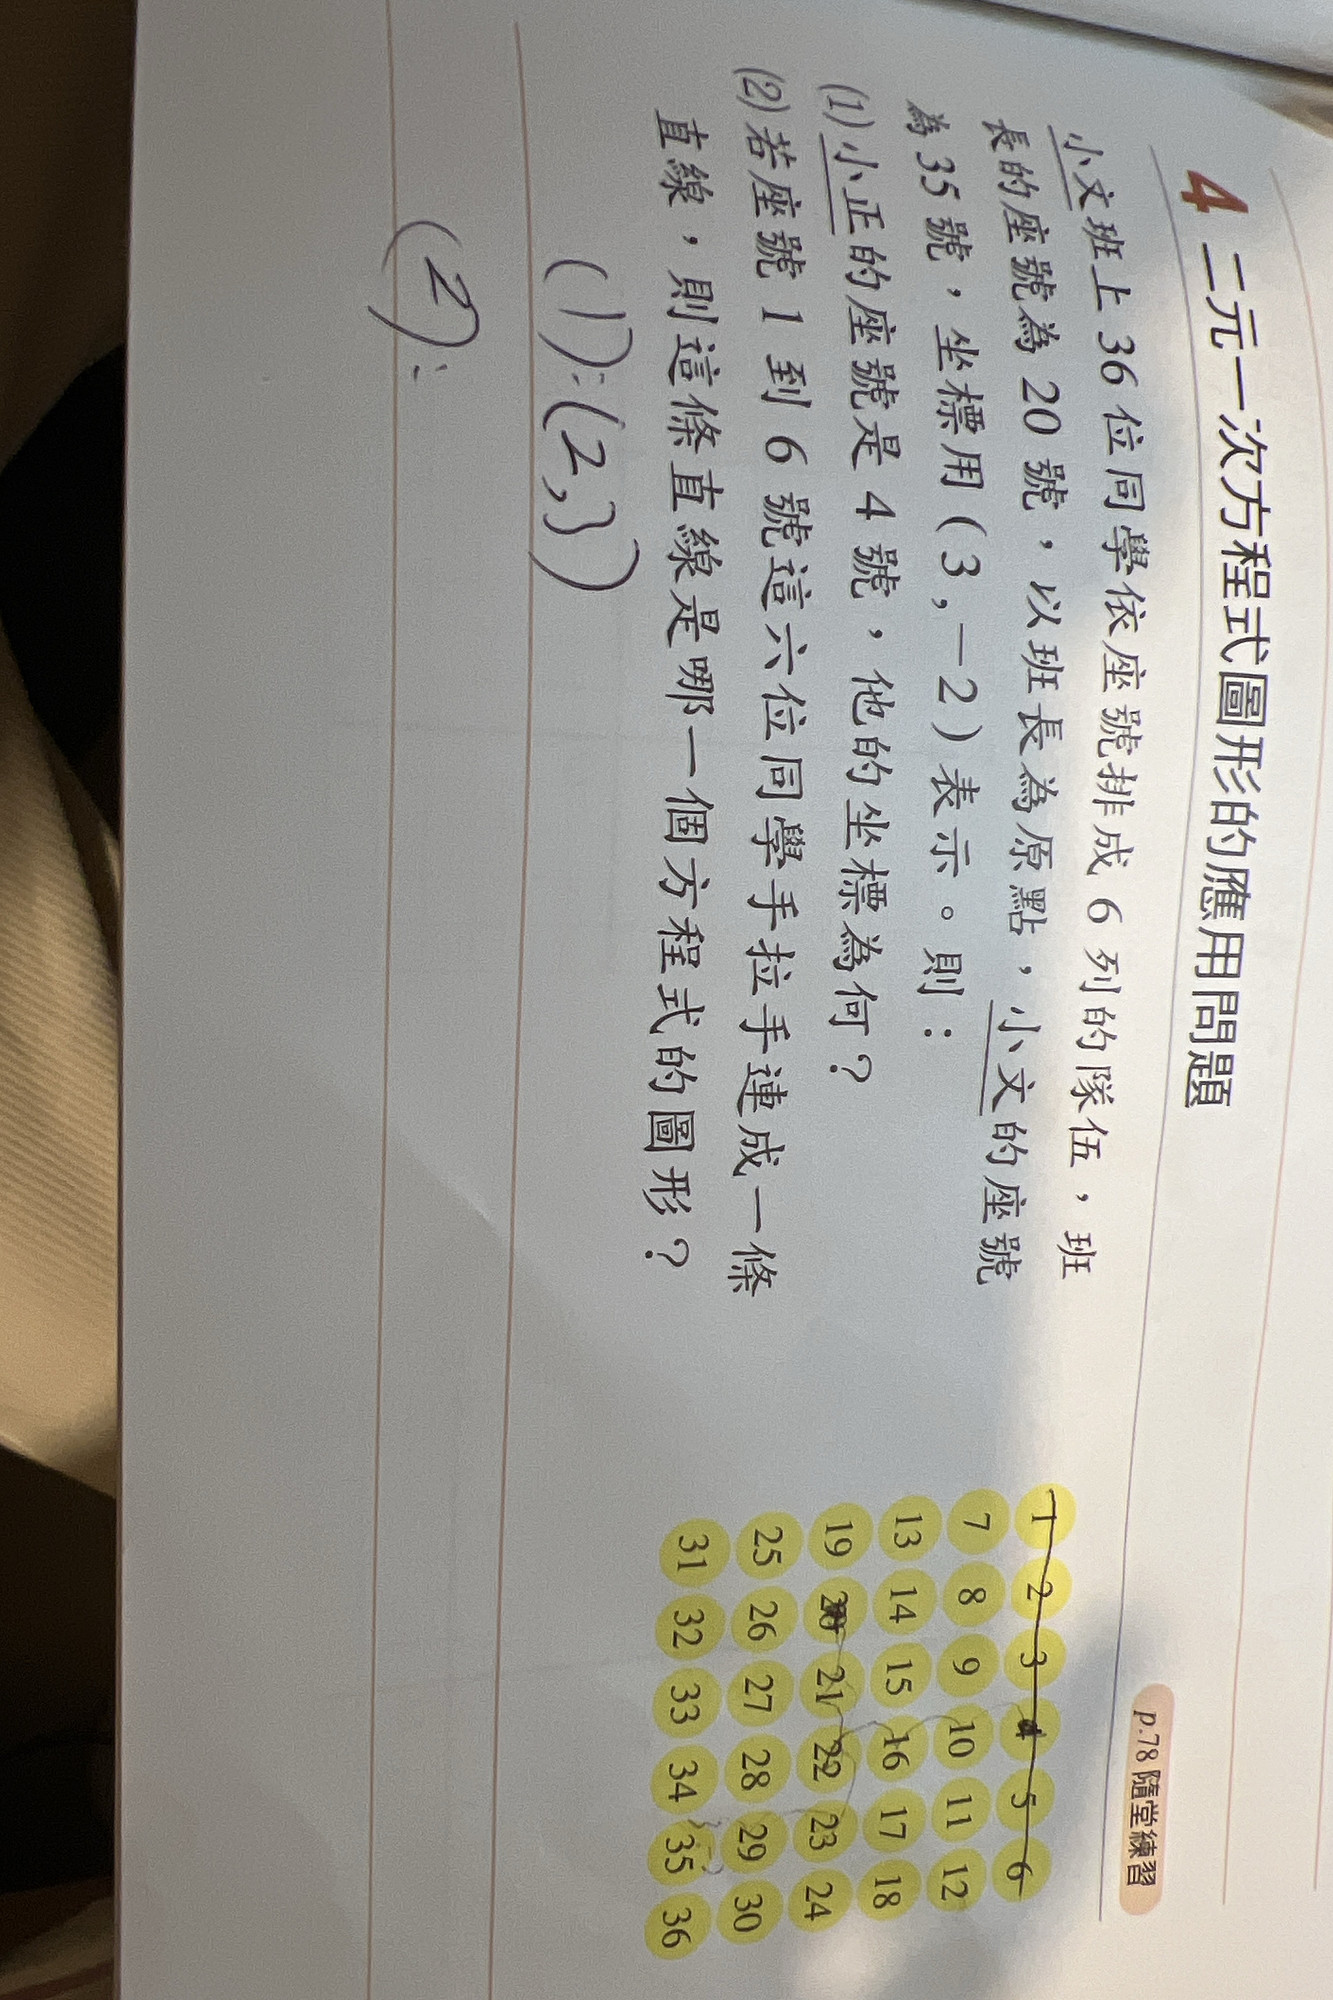 4 二元一次方程式圖形的應用問題
p.78 隨堂練習
小文班上 36 位同學依座號排成 6 列的隊伍，班
長的座號為 20 號，以班長為原點，小文的座號
為 35 號，坐標用（3,－2）表示。則：
(1)小正的座號是 4 號，他的坐標為何？
(2)若座號 1 到 6 號這六位同學手拉手連成一條
直線，則這條直線是哪一個方程式的圖形？
1 2 3 4 5 6
7 8 9 10 11 12
13 14 15 16 17 18
19 20 21 22 23 24
25 26 27 28 29 30
31 32 33 34 35 36
(1):(2,3)
(2):